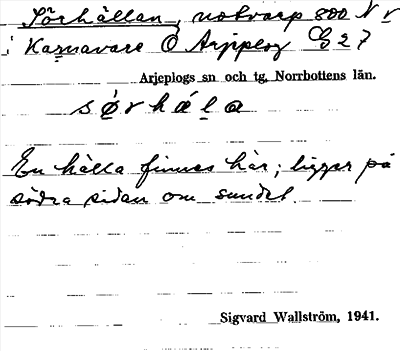 Sörhällan, notvarp 800 N v
i Kasnavare Ö Arjeplog G 27
Arjeplogs sn och tg, Norrbottens län.
sørhála
En hälla finnes här; ligger på
södra sidan om sundet.
Sigvard Wallström, 1941.